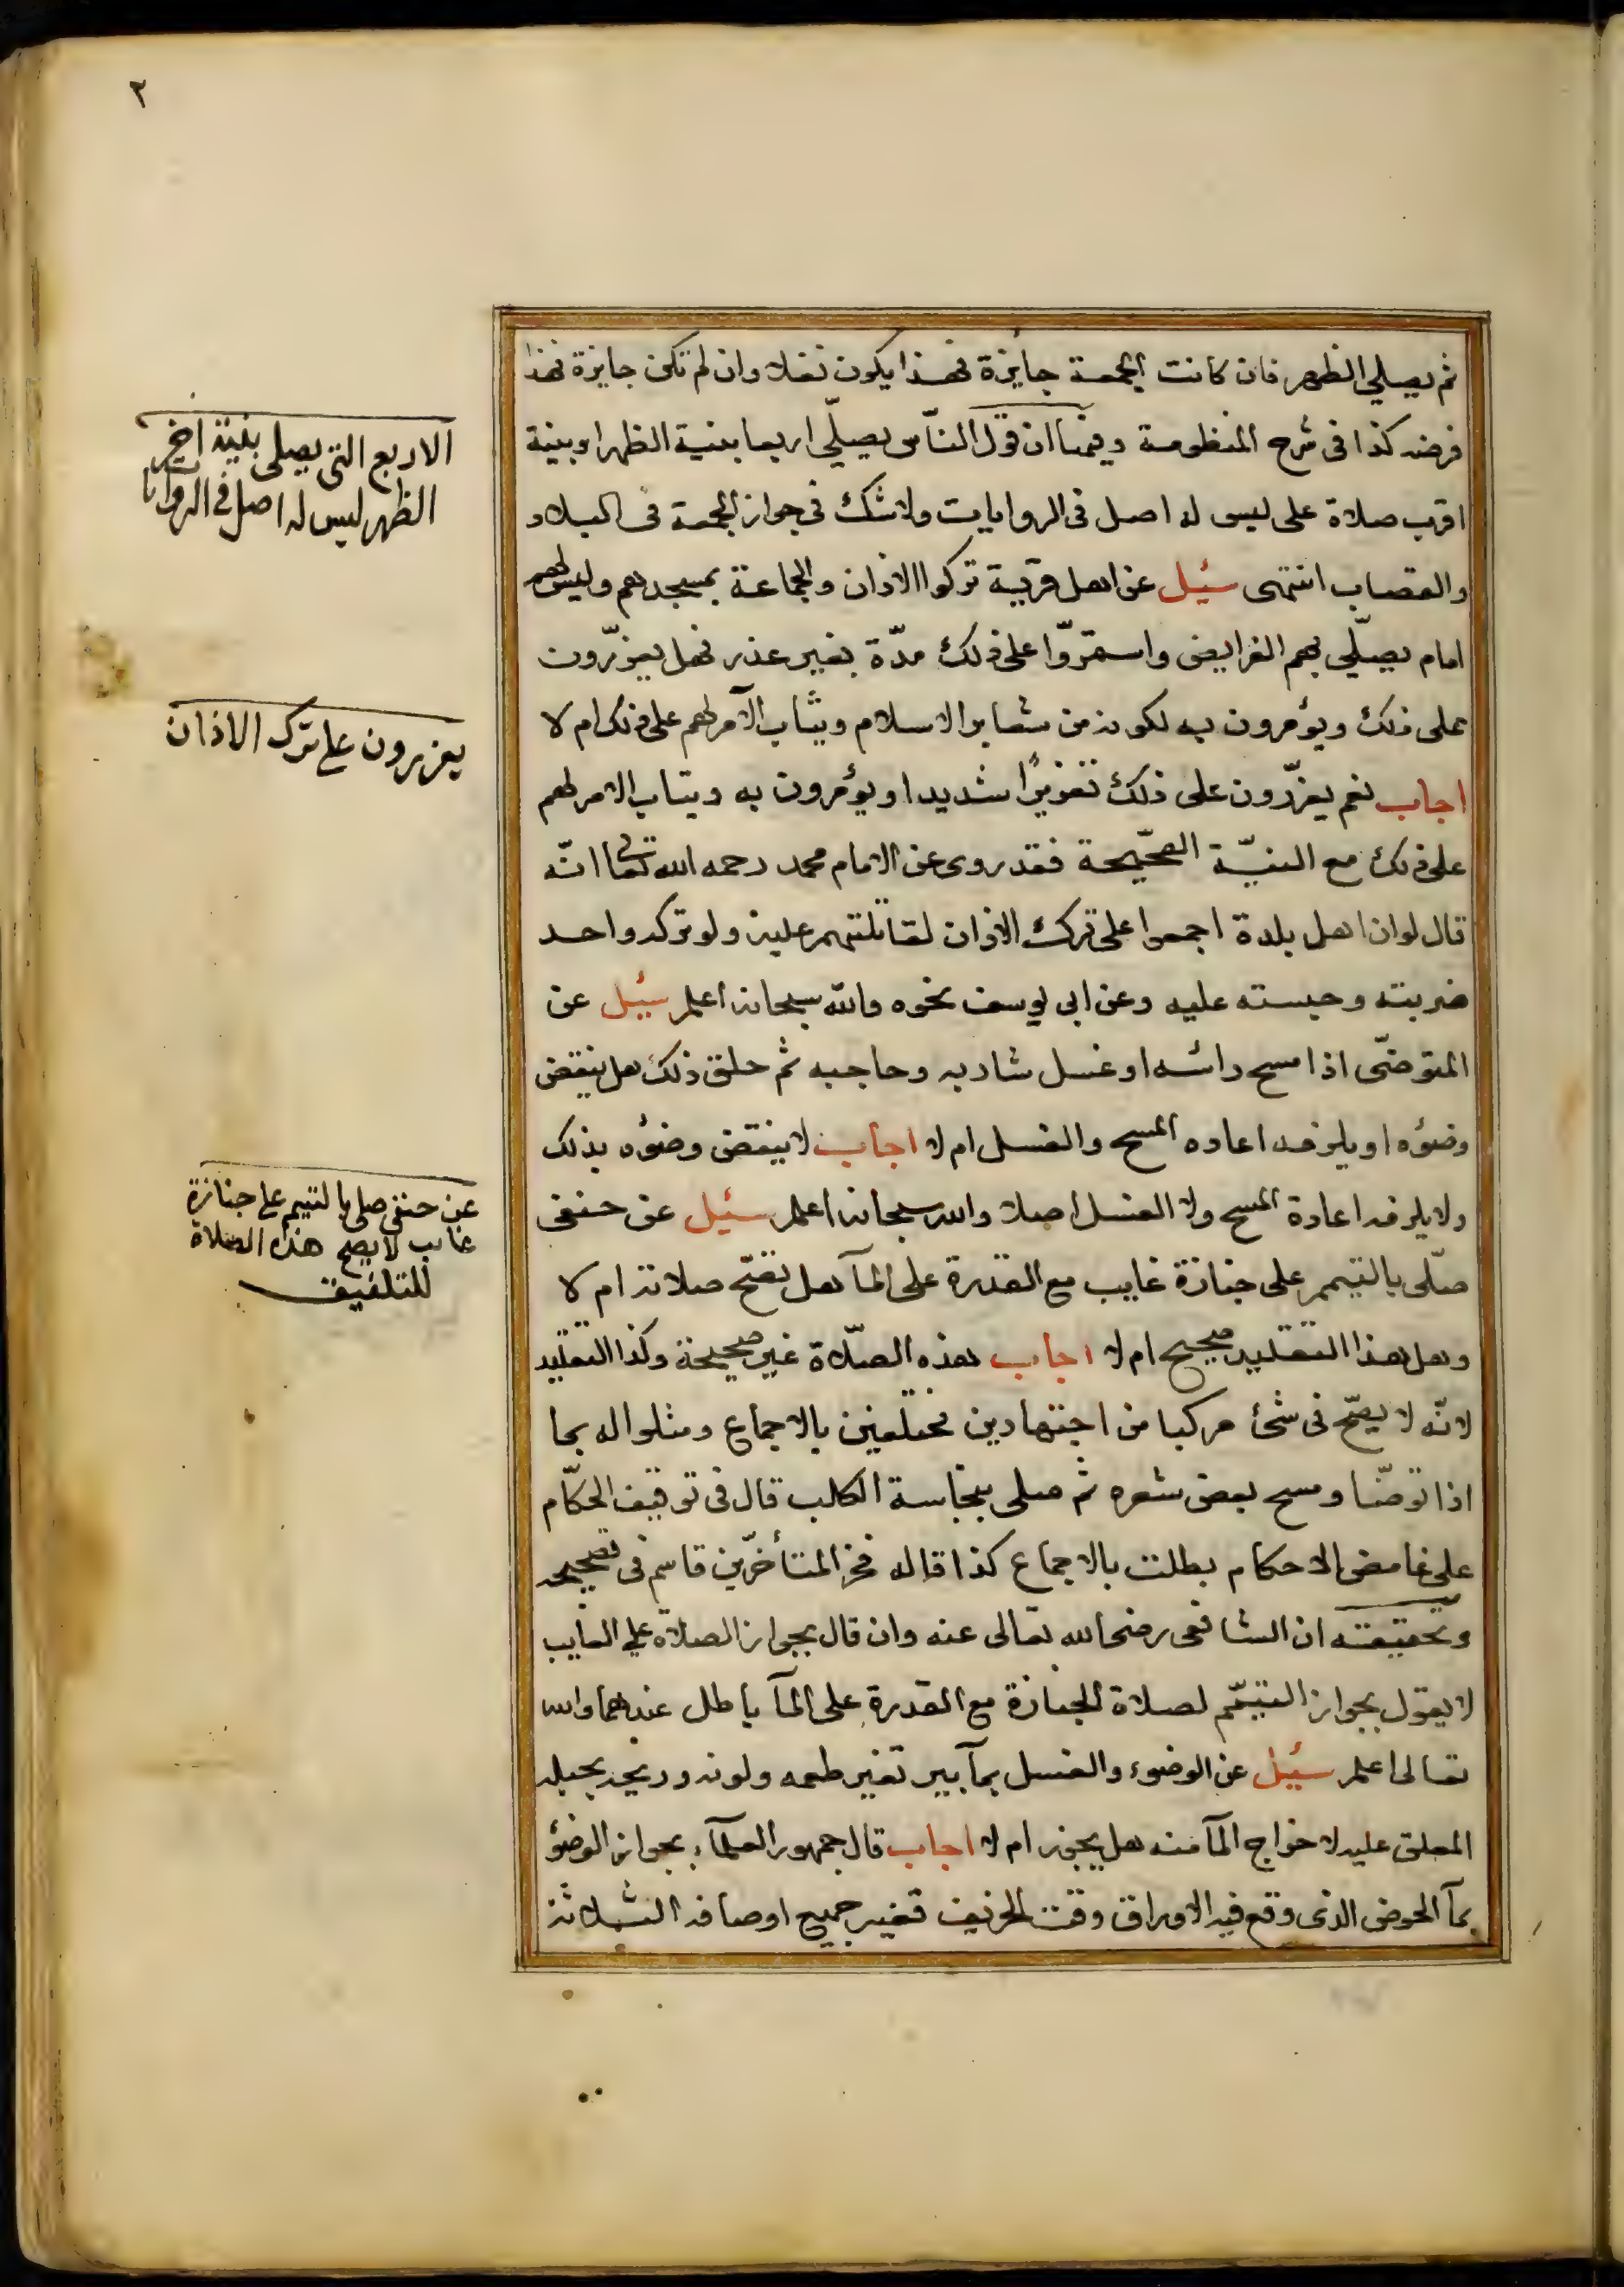 ٢
ثم يصلي الظهر فان كانت الجمعة جايزة فهذا يكون نفلا وان لم تكن جايزة فهذا
فرضه كذا فى شرح المنظومة وفيما ان قول الناّس يصلّي اربعا بنية الظهر او بنية
اقرب صلاة على ليس له اصل فى الروايات ولا شك فى جواز الجمعة فى البلاد
والقصاب انتهى سئيل عن اهل قرية تركوا الاذان والجماعة بمسجدهم وليس لهم
امام يصلّي بهم الفرايض واستمرّوا على ذلك مدّة بغير عذر فهل يعزّرون
على ذلك ويؤمرون به لكونه من شعاير الاسلام ويثاب الآمر لهم على ذلك ام لا
اجاب نعم يعزّرون على ذلك تعزيرًا شديدا ويؤمرون به ويثاب الامر لهم
على ذلك مع النيّة الصحيّحة فقد روى عن الامام محمد رحمه الله تعالى انّه
قال لو ان اهل بلدة اجمعوا على ترك الاذان لقاتلتهم عليه ولو تركه واحد
ضربته وحبسته عليه وعن ابى يوسف نحوه والله سبحانه اعلم سئيل عن
المتوضّى اذا مسح رائسه او غسل شاربه وحاجبه ثم حلق ذلك هل ينقض
وضؤه او يلزمه اعاده المسح والغسل ام لا اجاب لا ينقض وضؤه بذلك
ولا يلزمه اعادة المسح ولا الغسل اصلا والله سبحانه اعلم سئيل عن حنفى
صلّى بالتيمم على جنازة غايب مع القدرة على المآ هل تصّح صلاته ام لا
وهل هذا التقليد صحيح ام لا اجاب هذه الصّلاة غير صحيحة وكذا التقليد
لانّه لا يصّح فى شئ مركبا من اجتهادين مختلفين بالاجماع ومثلوا له بما
اذا توضّا ومسح بعض شعره ثم صلى بنجاسة الكلب قال فى توقيف الحكّام
على غامض الاحكام بطلت بالاجماع كذا قاله فخر المتأخرّين قاسم فى تصحيحه
وتحقيقه ان الشافعى رضى الله تعالى عنه وان قال بجواز الصلاة على الغايب
لا يقول بجواز التيمّم لصلاة الجنازة مع القدرة على المآ باطل عندهما والله
تعالى اعلم سئيل عن الوضوء والغسل بمآ بير تغير طعمه ولونه وريحه بحبله
المعلق عليه لاخراج المآ منه هل يجوز ام لا اجاب قال جمهور العلمآء بجواز الوضؤ
بمآ الحوض الذى وقع فيه الاوراق وقت الخريف فتغير جميع اوصافه الثلاثة
الاربع التى يصلى بنية اخر
الظهر ليس له اصل فى الروايات
يعزرون على ترك الاذان
عن حنفى صلى بالتيمم على جنازة
غايب لا يصح هذه الصلاة
للتلفيق